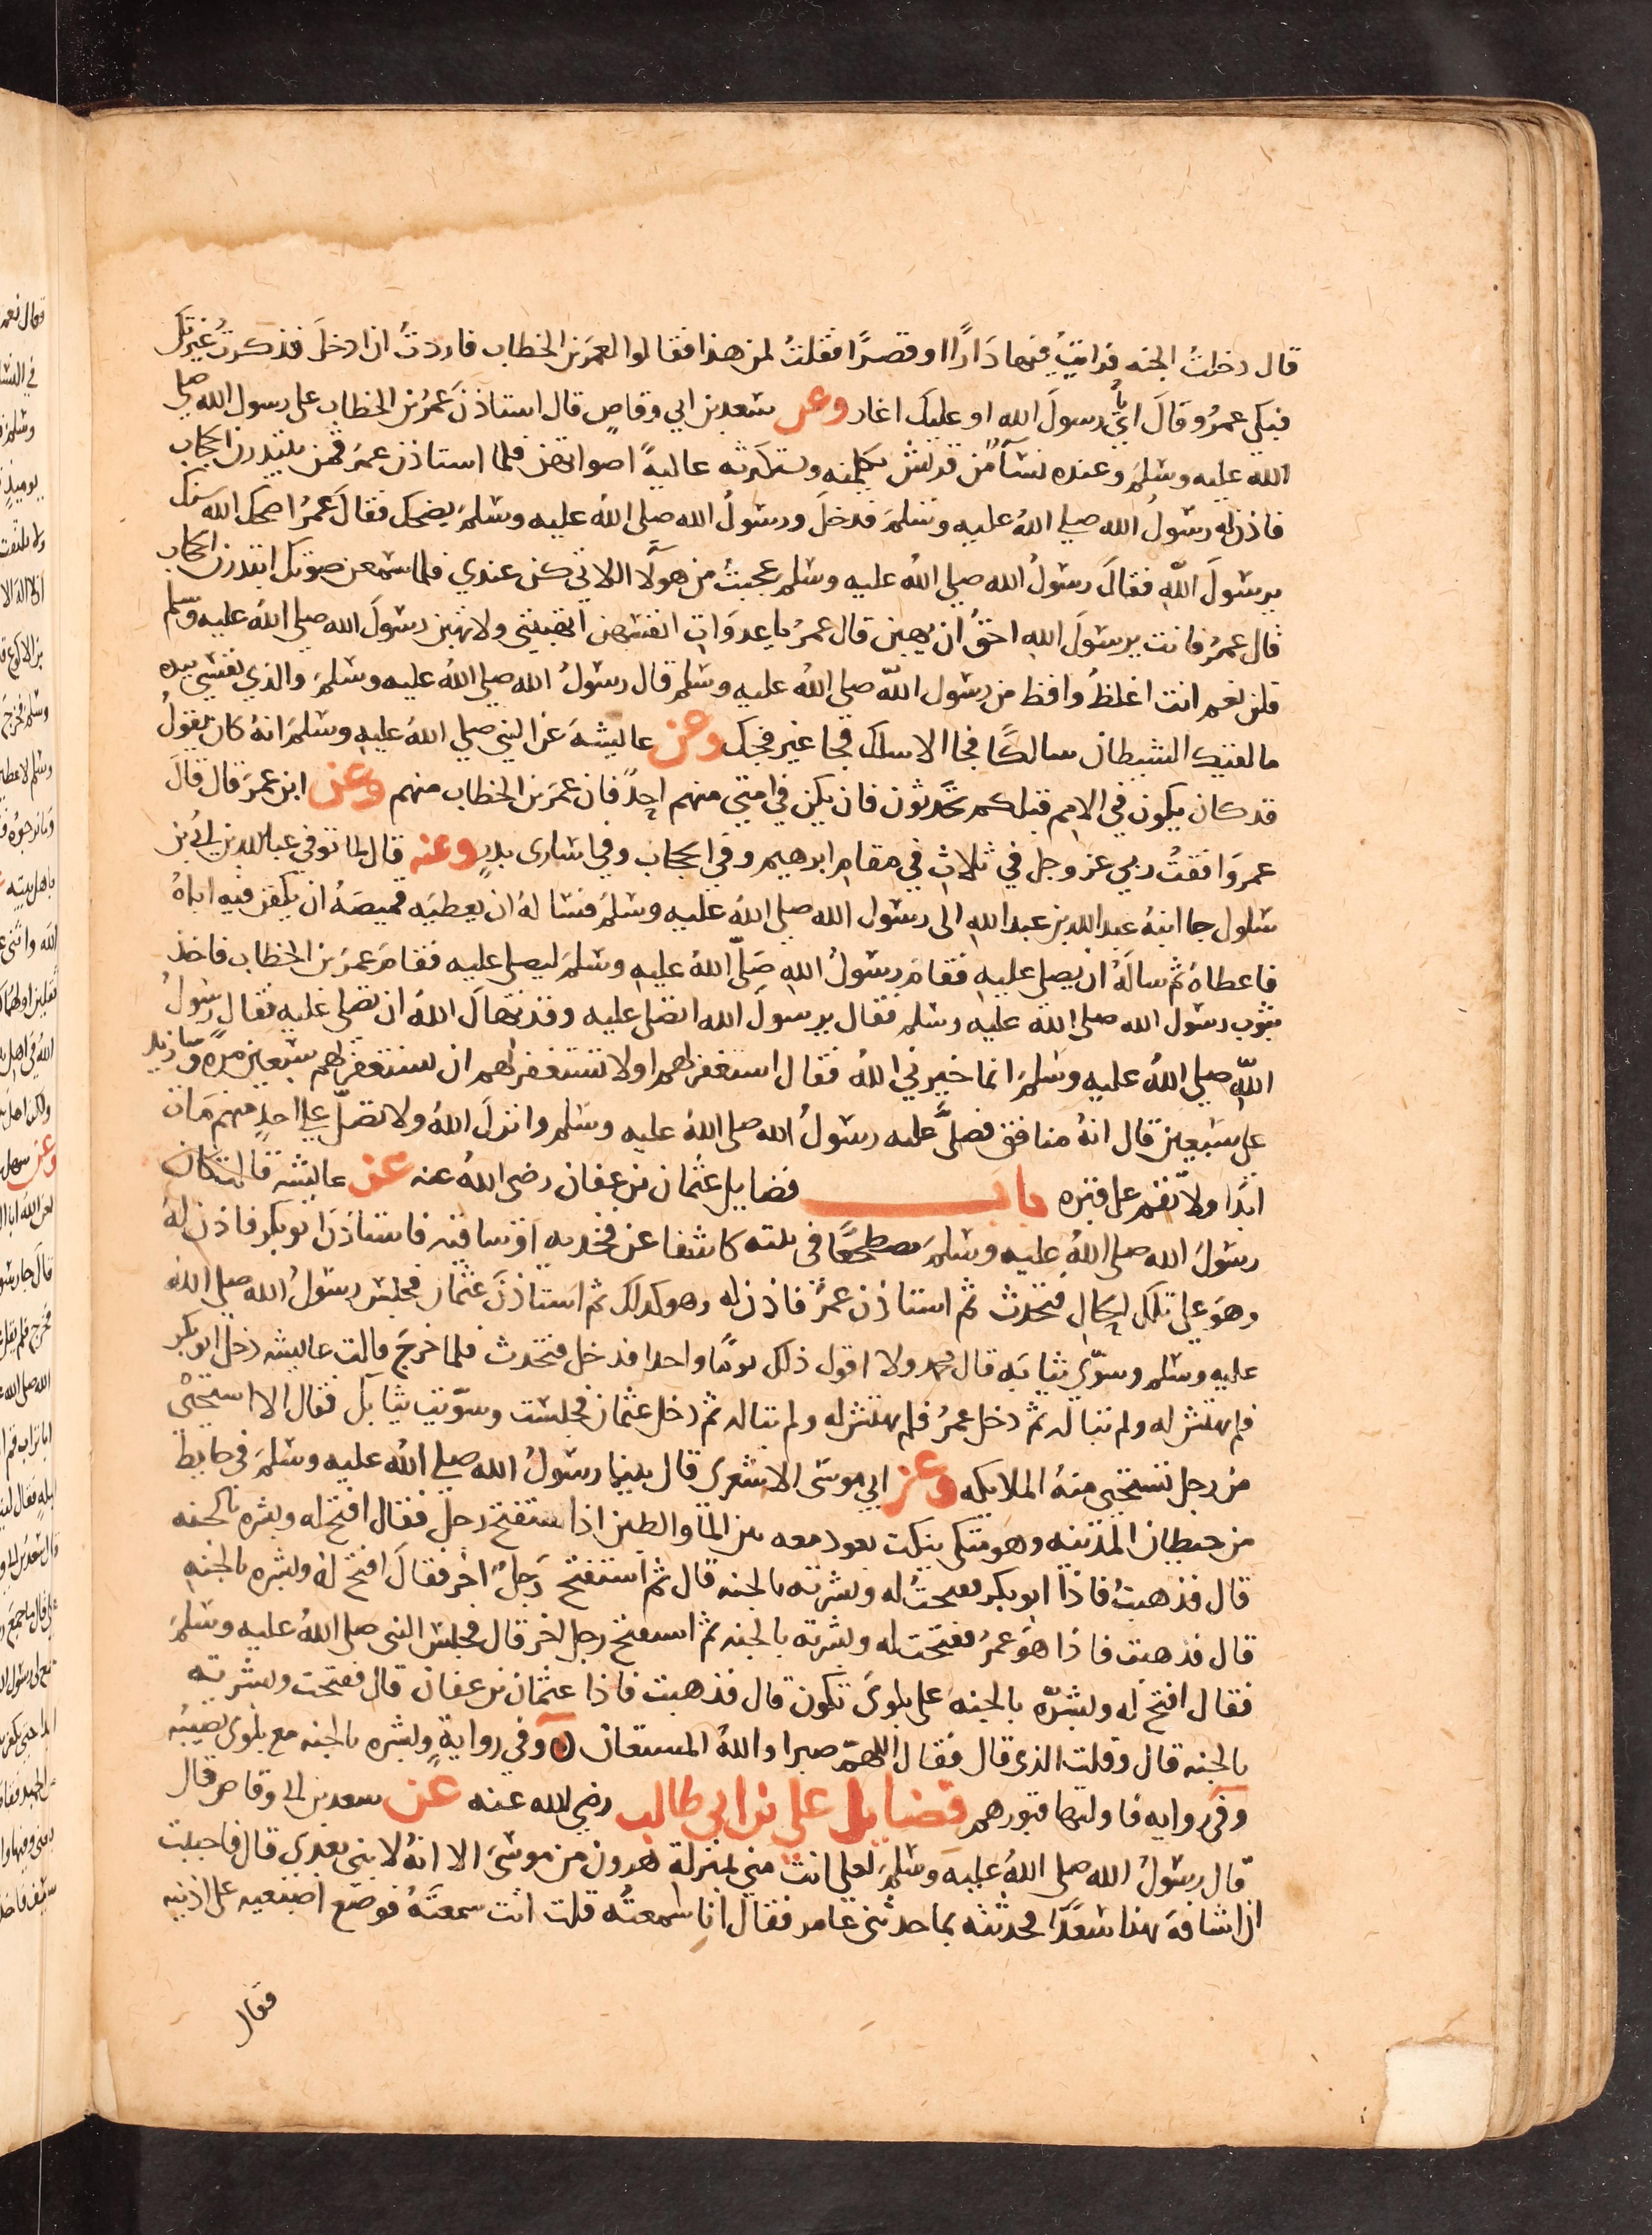 قال دخلتُ الجنه فرايتُ فيها دَارًا او قصرًا فقلتُ لمن هذا فقالوا لعمَر بن الخطاب فاردتُ ان ادخلَ فذكرتُ غيرتك
فبكى عمرُ وقَالَ ايْ رسولَ الله او عليك اغار وعن سعد بن ابي وقاصٍ قال استاذنَ عمرُ بن الخطاب على رسول الله صلى
الله عليه وسلمَ وعنده نسآٌ من قريش يكلمنه ويستكثرنه عاليةً اصواتهن فلما استاذن عمرُ قمن يبتدرن الحجاب
فاذن له رسُولُ الله صلي اللهُ عليه وسَلمَ فدخلَ ورسُولُ الله صلى اللهُ عليه وسلمَ يضحك فقالَ عمرُ اضحك الله سنك
يرسُولَ اللهِ فقالَ رسُولُ الله صلي اللهُ عليه وسلم عجبتُ من هولآ اللاتي كن عندي فلما سمعن صوتك ابتدرن الحجاب
قال عمرُ فانت يرسُولَ اللهِ احقُ ان يهبن قال عمرُ يا عدوَاتِ انفسهن اتهبنني ولا تهبن رسُولَ الله صلي اللهُ عليه وسلم
قلن نعم انت اغلظُ وافظ من رسول اللّه صلى اللهُ عليه وسلم قال رسُولُ الله صلي اللهُ عليه وسَلمَ والذي نفسي بيده
ما لقيك الشيطان سالكًا فجا الا سلك فجا غير فجك وعن عايشهَ عن النبي صلي اللهُ عليه وسَلمَ انهُ كان يقولُ
قد كان يكون في الامم قبلكم محَدثون فان يكن في امتي منهم احدٌ فان عمَر بن الخطاب منهم وعن ابن عمَرَ قال قالَ
عمرُ وافقتُ ربي عز وجل في ثلاثٍ في مقامِ ابرهيم وفي الحجاب وفي اسارى بدرٍ وعنه قال لما توفي عبد الله بن اُبيّ بن
سلول جا ابنهُ عبد الله بن عبد اللهِ الى رسُول الله صلي اللهُ عليه وسَلمَ فسَالهُ ان يعطيَه قميصَهُ ان يكفن فيه اباهُ
فاعطاهُ ثم سالَهُ ان يصلي عليهِ فقامَ رسُولُ اللهِ صَلّى اللهُ عليهِ وسَلمَ ليصلي عليه فقامَ عمرُ بن الخطاب فاخذ
بثوب رسُول الله صلى الله عليه وسلم فقال يرسولَ الله اتصلي عليه وقد نهاكَ اللهُ ان تصلي عليه فقال رسُولُ
اللهِ صلي اللهُ عليه وسَلمَ انما خيرني اللهُ فقال استغفر لهم اولا تستغفر لهم ان تستغفر لهم سبعين مرَه وسازيد
على سَبعين قال انهُ منافق فصلّى عليه رسُولُ الله صلى اللهُ عليه وسَلم وانزلَ اللهُ ولا تصلّ على احدٍ منهم مَاتَ
ابدًا ولا تقم على قبره باب فضايل عثمان بن عفان رضى اللهُ عنه عن عايشه قالت كانَ
رسُولُ الله صلى اللهُ عليه وسَلمَ مضطجعًا في بيته كاشفا عن فخديه او ساقيه فاستاذنَ ابو بكر فاذن لهُ
وهوَ على تلك الحَالِ فتحدث ثم استاذن عمرُ فاذن له وهو كذلك ثم اَستاذنَ عثمان فجلسَ رسُولُ الله صلى الله
عليه وسَلم وسوّى ثيابَه قال محمد ولا اقول ذلك يومًا واحدا فدخل فتحدث فلما خرجَ قالت عايشه دخل ابو بكر
فلم تهتش له ولم تباله ثم دخل عمرُ فلم تهتش له ولم تباله ثم دخل عثمان فجلست وسوّيت ثيابك فقال الا استحيي
من رجل تستحيي منهُ الملايكه وعن ابي موسَى الاشعرى قال بينما رسُولُ الله صلي اللهُ عليه وسَلمَ في حايط
من حيطان المدينه وهو متكي ينكت بعود معه بين المآ والطين اذا استفتح رجل فقال افتح له وبشره بالجنه
قال فذهبتُ فاذا ابو بكر ففتحتُ له وبشرته بالجنه قال ثم استفتح رَجلٌ اخر فقالَ افتح لهُ وبشره بالجنهِ
قال فذهبت فاذا هوَ عمرُ ففتحت له وبشرته بالجنه ثم استفتح رجل اخر قال فجلسَ النبي صلى اللهُ عليه وسَلمَ
فقال افتح له وبشرّه بالجنهَ على بلوىَ تكون قال فذهبت فاذا عثمان بن عفان قال ففتحت وبشرته
بالجنه قال وقلت الذى قال فقال اللهمّ صبرا واللهُ المستعان وفي روايةٍ وبشره بالجنه مع بلوى تصيبُه
وفي روايه فاولتها قبورهم فضايل علي بن ابي طالب رضي الله عنه عن سعد بن ابى وقاص قال
قال رسُولُ الله صلى اللهُ عليه وسَلمَ لعلي انت مني بمنزلة هرون من موسَى الا انهُ لا نبي بعدى قال فاحببت
ان اشافهَ بهذا سَعَدًا فحدثته بما حدثني عامر فقال انا سمعتُه قلت انت سمعتَهُ فوضع اصبعيه على اذنيه
فقال